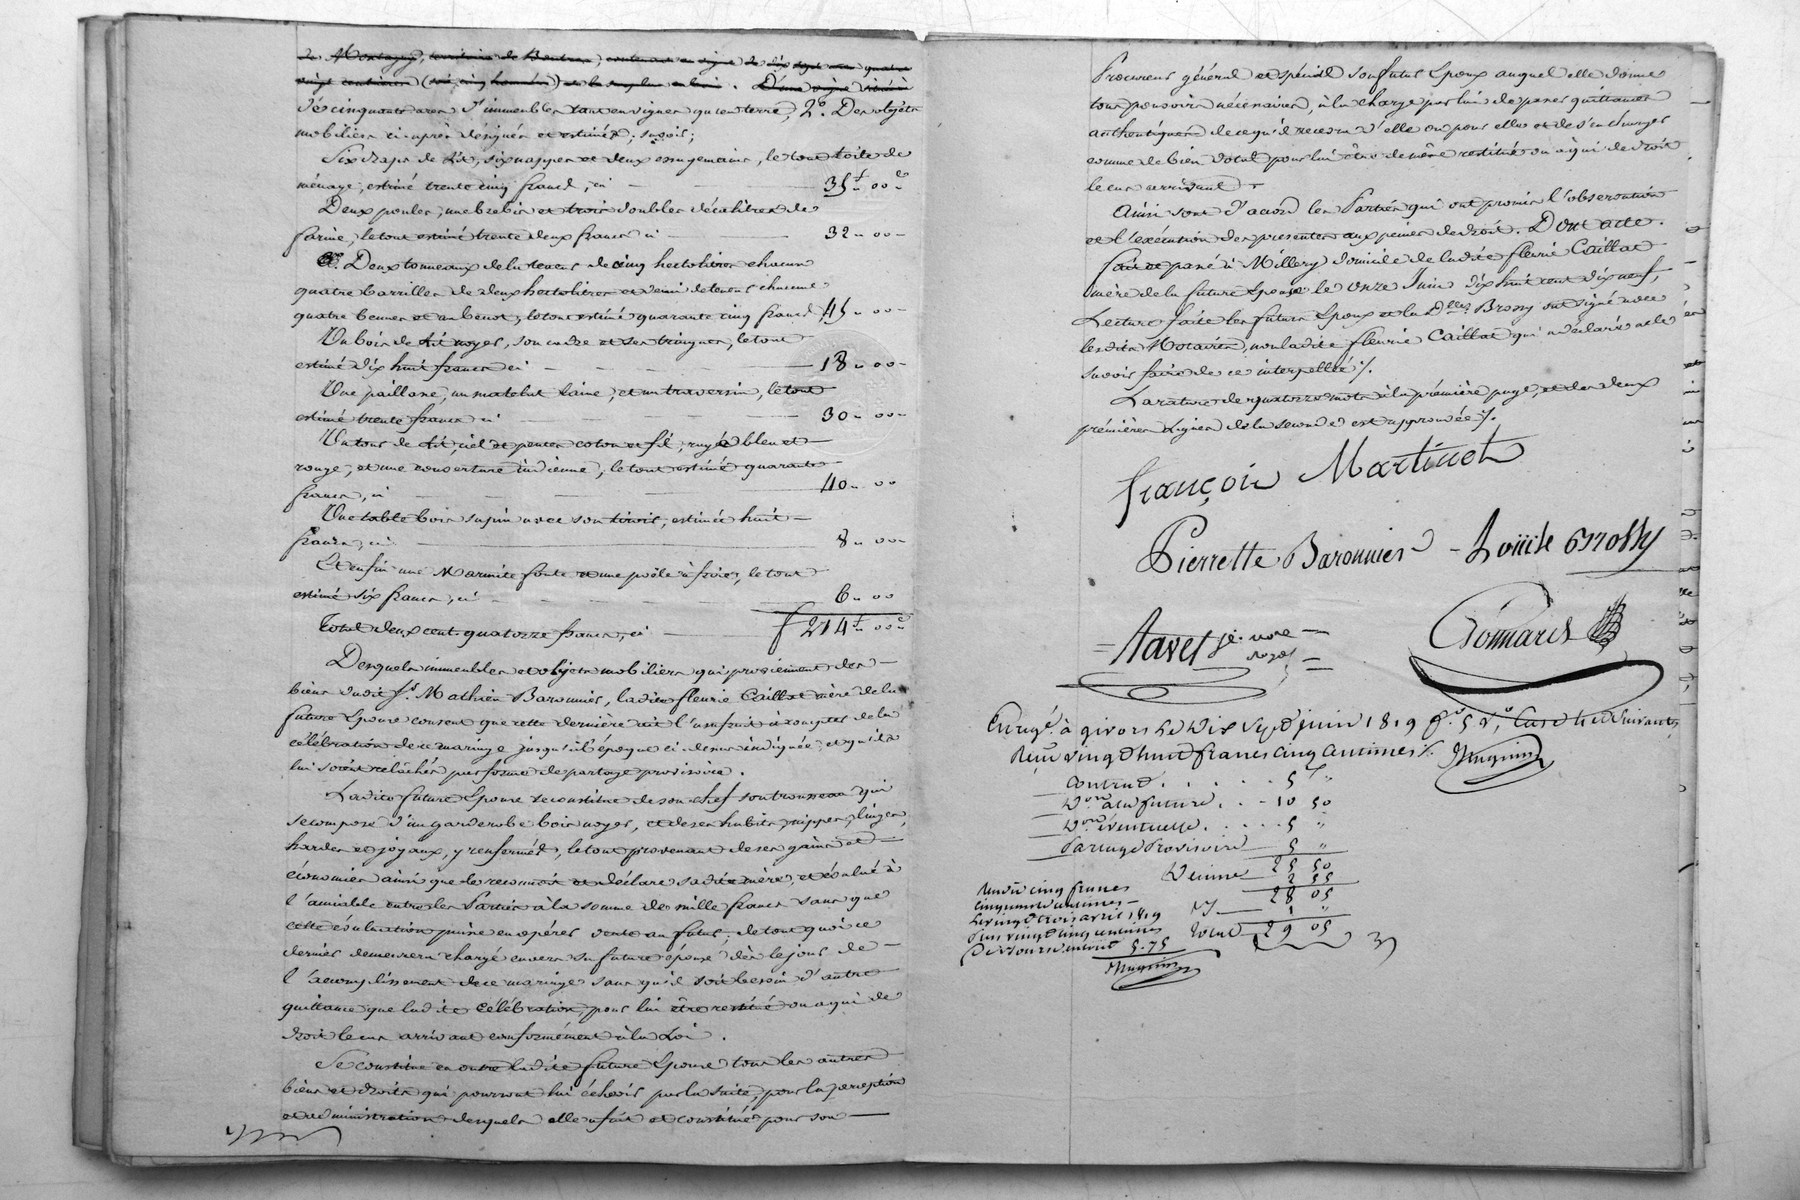 de Montagny, territoire de
vingt centiares
des cinquante ares d'immeubles tant en vignes qu'en terre, 2º. Des objets
mobiliers ci-après designés et estimés, savoir;
Six draps de lit, six nappes et deux essuyemains, le tout toile de
ménage, estimé trente cinq francs, ci 35f „ 00c
Deux poules, une brebis et trois doubles décalitres de
farine, le tout estimé trente deux francs ci 32 „ 00
Deux tonneaux de la teneur de cinq hectolitres chacun
quatre barrilles de deux hectolitres et demi de teneur chacune
quatre bennes et un benot, le tout estimé quarante cinq francs 45 „ 00
Un bois de lit noyer, son cadre et ses tringues, le tout
estimé dix huit francs ci 18 „ 00
Une paillasse, un matelat laine, et un traversin, le tout
estimé trente francs ci 30 „ 00
Un tour de lit, ciel et pentes coton et fil, rayé bleu et
rouge, et une couverture indienne, le tout estimé quarante
francs, ci 40 „ 00
Une table bois sapin avec son tiroir, estimée huit
francs, ci 8 „ 00
Et enfin une Marmite fonte et une poêle à frire, le tout
estimé six francs, ci 6 „ 00
Total deux cent quatorze francs, ci 214f „ 00c
Desquels immeubles et objets mobiliers qui proviennent des
biens dudit Mathieu Baronnier, ladite fleurie Caillat mère de la
future Epouse consent que cette dernière ait l'usufruit à compter de la
célébration de ce mariage jusqu'à l'époque ci dessus indiquée, et qu'ils
lui soient relâchés par forme de partage provisoire.
Ladite future Epouse se constitue de son chef son trousseau qui
se compose d'un garderobe bois noyer, et de ses habits, nippes, linges,
hardes et joyaux, y renfermés, le tout provenant de ses gains et
économies ainsi que le reconnoit et déclare sadite mère, et évalué à
l'amiable entre les Parties à la somme de mille francs sans que
cette évaluation puisse en opérer vente au futur, de tout quoi ce
dernier demeurera chargé envers sa future épouse dès le jour de
l'accomplissement de ce mariage sans qu'il soit besoin d'autre
quittance que ladite célébration, pour lui être restitué ou à qui de
droit le cas arrivant conformément à la Loi.
Se constitue en outre ladite future Epouse tous les autres
biens et droits qui pourront lui échoir par la suite, pour la perception
et administration desquels elle a fait et constitué pour son
Procureur général et spécial son futur Epoux auquel elle donne
tous pouvoirs nécessaires, à la charge par lui de passer quittances
authentiques de ce qu'il recevra d'elle ou pour elle et de s'en charger
comme de bien dotal pour lui être de même restitué ou à qui de droit
le cas arrivant.
Ainsi sont d'accord les Parties qui ont promis l'observation
et l'exécution des presentes aux peines de droit. Dont acte.
fait et passé à Millery domicile de ladite fleurie Caillat
mère de la future Epouse le onze Juin dix huit cent dix neuf,
Lecture faite les futurs Epoux et la Dlle Brossy ont signé avec
lesdits Notaires, non ladite fleurie Caillat qui a déclaré ne le
savoir faire de ce interpellée /.
La rature de quatorze mots à la première page, et des deux
premières lignes de la seconde est approuvée /.
françois Martinot
Pierrette Baronnier - Louise Brossy
Navet
Enregé à givors le dix sept juin 1819 fo 5 Vo, Case 1 et suivantes
Reçu vingt huit francs cinq centimes /.
Contrat 5f „
Don à la future 10 50
Don éventuelle 5 „
Partage Provisoire 5 „
25 50
Dixième 2 55
28 05
1 „
Total 29 05
Rendu cinq francs
cinquante centimes
Le vingt trois avril 1819
5.75